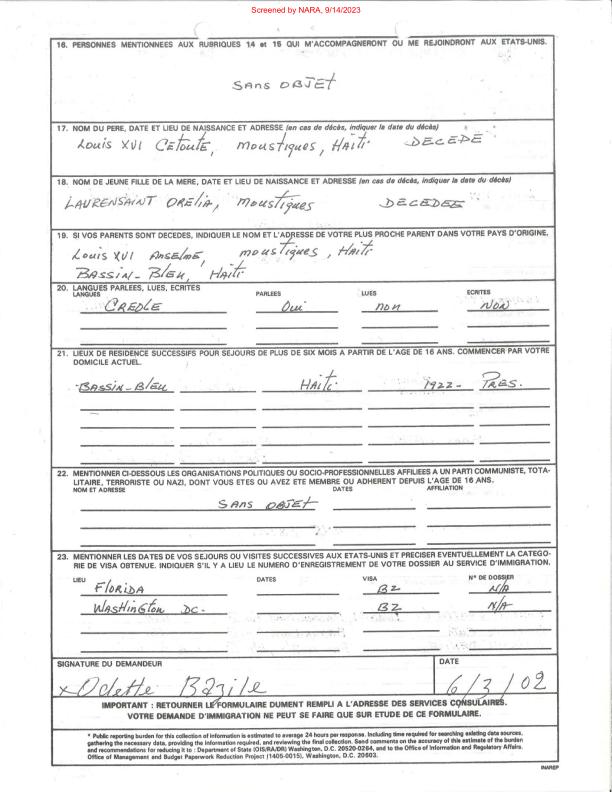 Screened by NARA, 9/14/2023
16. PERSONNES MENTIONNEES AUX RUBRIQUES 14 et 15 QUI M'ACCOMPAGNERONT OU ME REJOINDRONT AUX ETATS-UNIS.
SANS OBJET
17. NOM DU PERE, DATE ET LIEU DE NAISSANCE ET ADRESSE (en cas de décès, indiquer la date du décès)
Louis XVI CETOUTE, MOUSTIQUES, HAITI DECEDE
18. NOM DE JEUNE FILLE DE LA MERE, DATE ET LIEU DE NAISSANCE ET ADRESSE (en cas de décès, indiquer la date du décès)
LAURENSAINT ORELIA, MOUSTIQUES DECEDEE
19. SI VOS PARENTS SONT DECEDES, INDIQUER LE NOM ET L'ADRESSE DE VOTRE PLUS PROCHE PARENT DANS VOTRE PAYS D'ORIGINE.
Louis XVI ANSELME, MOUSTIQUES, HAITI
BASSIN-BLEU, HAITI
20. LANGUES PARLEES, LUES, ECRITES
LANGUES PARLEES LUES ECRITES
CREOLE Oui NON NON
21. LIEUX DE RESIDENCE SUCCESSIFS POUR SEJOURS DE PLUS DE SIX MOIS A PARTIR DE L'AGE DE 16 ANS. COMMENCER PAR VOTRE
DOMICILE ACTUEL.
BASSIN-BLEU HAITI 1922- PRES.
22. MENTIONNER CI-DESSOUS LES ORGANISATIONS POLITIQUES OU SOCIO-PROFESSIONNELLES AFFILIEES A UN PARTI COMMUNISTE, TOTA-
LITAIRE, TERRORISTE OU NAZI, DONT VOUS ETES OU AVEZ ETE MEMBRE OU ADHERENT DEPUIS L'AGE DE 16 ANS.
NOM ET ADRESSE DATES AFFILIATION
SANS OBJET
23. MENTIONNER LES DATES DE VOS SEJOURS OU VISITES SUCCESSIVES AUX ETATS-UNIS ET PRECISER EVENTUELLEMENT LA CATEGO-
RIE DE VISA OBTENUE. INDIQUER S'IL Y A LIEU LE NUMERO D'ENREGISTREMENT DE VOTRE DOSSIER AU SERVICE D'IMMIGRATION.
LIEU DATES VISA N° DE DOSSIER
FLORIDA B2 N/A
WASHINGTON DC- B2 N/A
SIGNATURE DU DEMANDEUR DATE
x Odette Bazile 6/3/02
IMPORTANT : RETOURNER LE FORMULAIRE DUMENT REMPLI A L'ADRESSE DES SERVICES CONSULAIRES.
VOTRE DEMANDE D'IMMIGRATION NE PEUT SE FAIRE QUE SUR ETUDE DE CE FORMULAIRE.
* Public reporting burden for this collection of information is estimated to average 24 hours per response. Including time required for searching existing data sources,
gathering the necessary data, providing the information required, and reviewing the final collection. Send comments on the accuracy of this estimate of the burden
and recommendations for reducing it to : Department of State (OIS/RA/DR) Washington, D.C. 20520-0264, and to the Office of Information and Regulatory Affairs.
Office of Management and Budget Paperwork Reduction Project (1405-0015), Washington, D.C. 20503.
INAREP